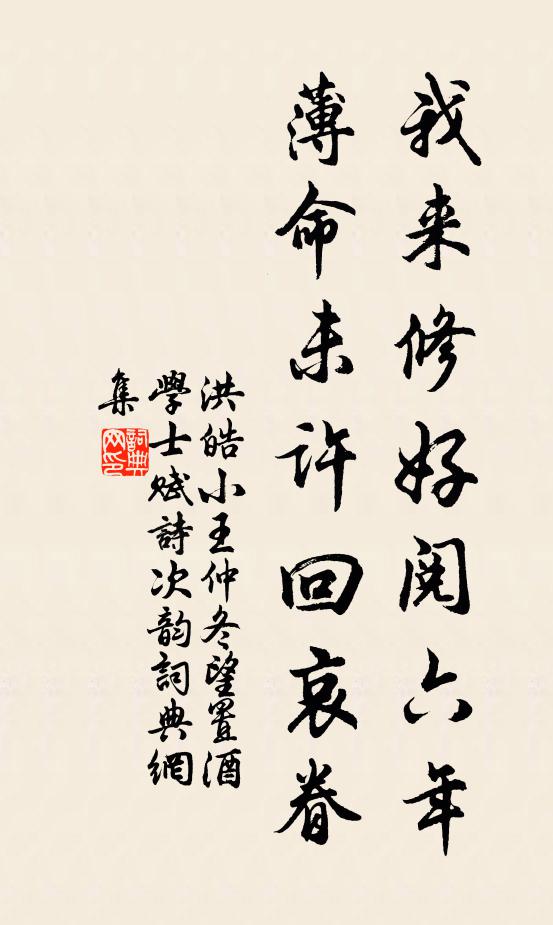 我来修好閱六年
薄命未许回哀眷
洪皓小王仲冬望置酒
學士赋詩次韵詞典網
集
詞典
网印